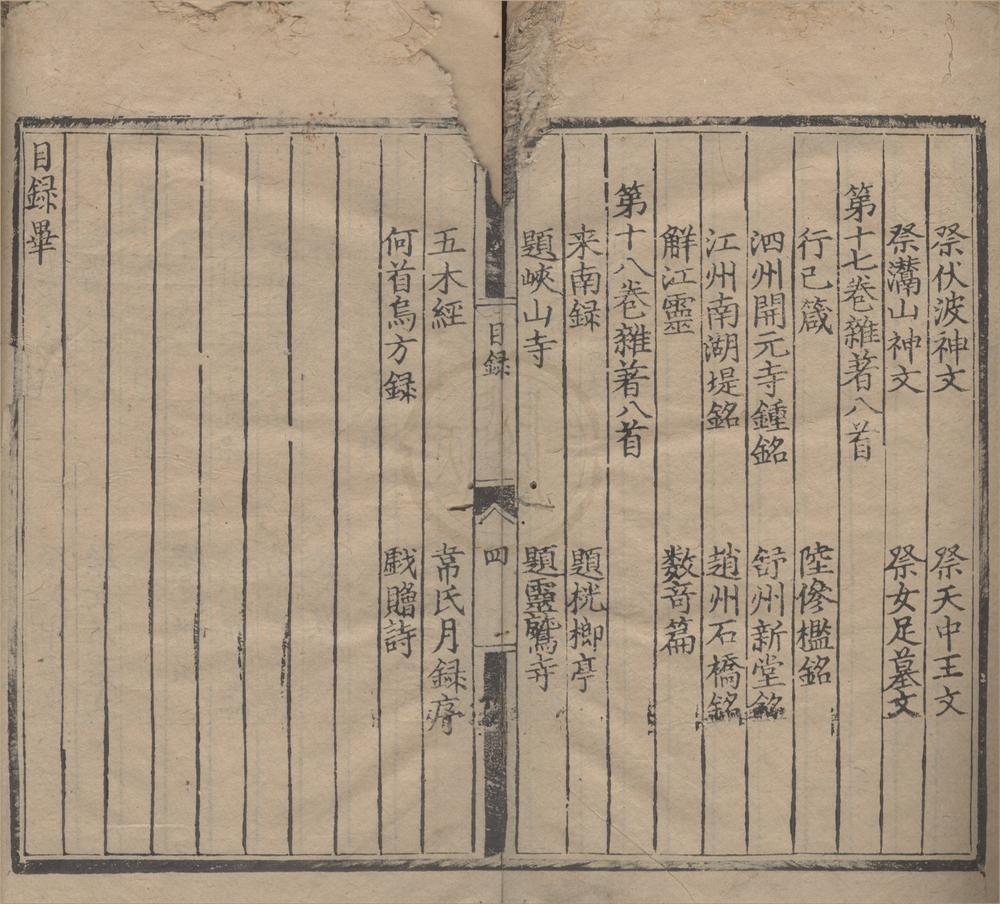 祭伏波神文　祭天中王文
祭灊山神文　祭女足墓文
第十七卷雜著八首
行己箴　陸傪檻銘
泗州開元寺鍾銘　舒州新堂銘
江州南湖堤銘　趙州石橋銘
解江靈　数竒篇
第十八卷雜著八首
来南録　題桄榔亭
題峽山寺　題靈鷲寺
目録
四
五木經　韋氏月録序
何首烏方録　戯贈詩
目録畢